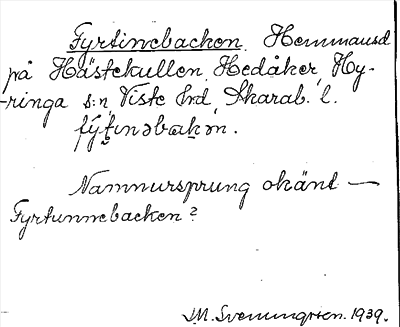 Fyrtinebacken. Hemmansd
på Hästekullen, Hedåker, Hy-
-ringa s:n, Viste hrd, Skarab. l.
fy̆t̯inəbakən.
Namnursprung okänt —
Fyrtunnebacken?
J.M. Svenungsson. 1939.